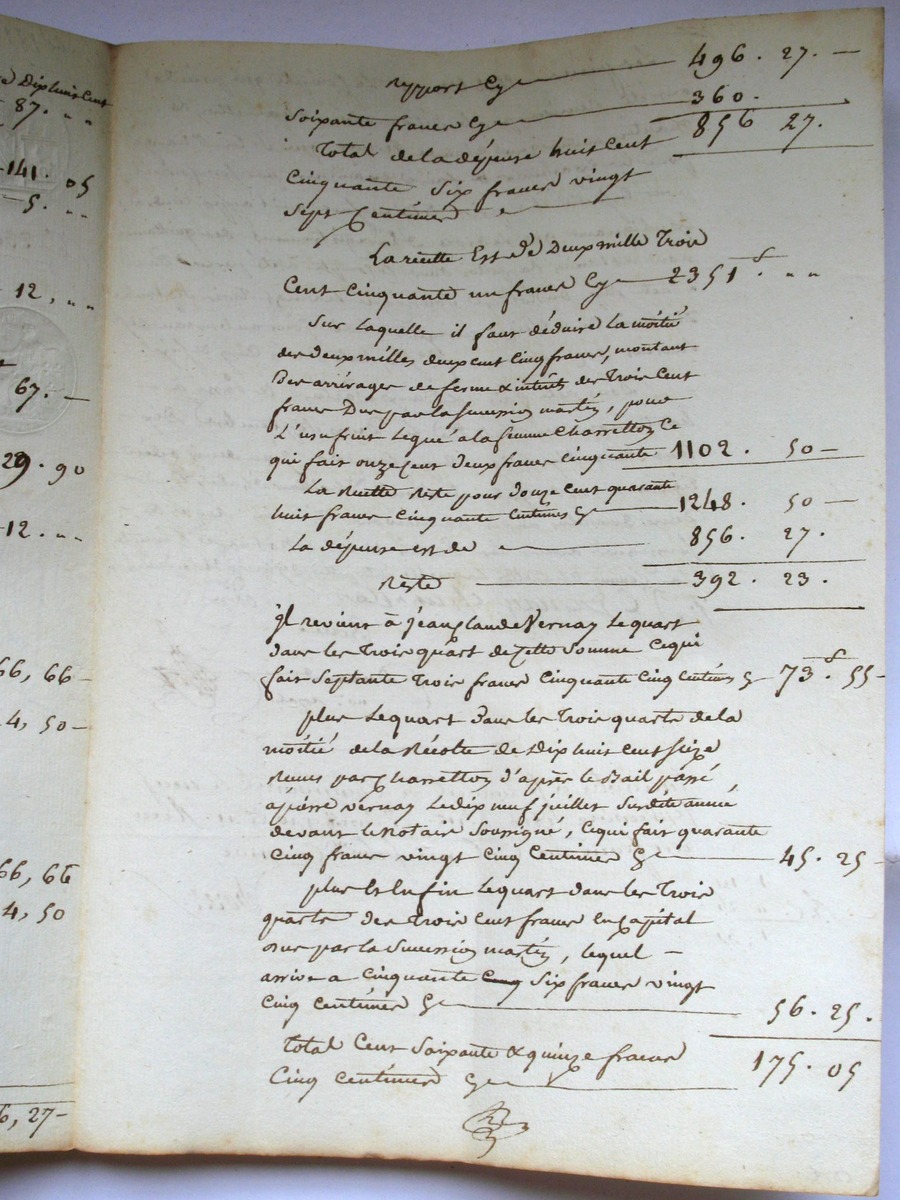 Dix huit Cent
87. " "
141. 05
5. " "
12, " "
67. —
29. 90
12. " "
66, 66 —
4, 50 —
66, 66
4, 50
6, 27 —
rapport Cy — 496. 27. —
soixante francs Cy — 360.
Total de la dépense huit Cent 856 27.
Cinquante Six francs vingt
sept Centimes
La recette Est de Deux mille Trois
Cent Cinquante un francs Cy — 2351 f " "
Sur laquelle il faut déduire la moitié
des deux milles deux cent Cinq francs, montant
Des arrérages de ferme & intérêts des Trois Cent
francs Dus par la Succession martin, pour
L'usufruit Legué a la femme Charretton Ce
qui fait onze Cent deux francs Cinquante 1102. 50 —
La Recette Reste pour douze Cent quarante
huit francs Cinquante Centimes Cy — 1248. 50 —
La dépense est de — 856. 27.
Reste — 392. 23.
Il revient à Jean Claude Vernay Le quart
dans les Trois quart de Cette Somme Ce qui
fait Septante Trois francs Cinquante Cinq Centimes Cy — 73 f. 55 —
plus Le quart Dans les Trois quarts de la
moitié de la Récolte de Dix huit Cent Seize
Remis par Charretton d'après le Bail passé
a pierre Vernay Le dix neuf juillet Susdite année
devant le Notaire Soussigné, Ce qui fait quarante
Cinq francs vingt Cinq Centimes Cy — 45. 25 —
plus Et Enfin Le quart dans les Trois
quarts des Trois Cent francs En Capital
dus par la Succession martin, lequel —
arrive a Cinquante Six francs vingt
Cinq Centimes Cy — 56. 25.
Total Cent Soixante & quinze francs
Cinq Centimes Cy — 175. 05